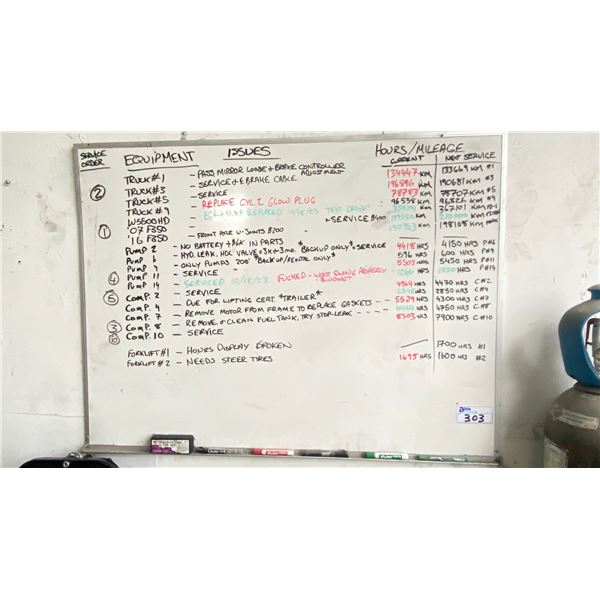 SERVICE ORDER EQUIPMENT ISSUES HOURS/MILEAGE
CURRENT NEXT SERVICE
TRUCK#1 - PASS MIRROR LOOSE & BRAKE CONTROLLER ADJUSTMENT 134447 KM 133669 KM #1
② TRUCK#3 - SERVICE & E BRAKE CABLE 196896 KM 190681 KM #3
TRUCK#5 - SERVICE 78783 KM 78707 KM #5
TRUCK#9 - REPLACE CYL 2 GLOW PLUG 96538 KM 96226 KM #9
W5500HD TEST DRIVE KM 367101 KM
① '07 F350 - SERVICE $400 KM 210000 KM
'16 F350 - FRONT AXLE U-JOINTS $200 KM 198105 KM
PUMP 2 - NO BATTERY + BOX IN PARTS 4418 HRS 4150 HRS P#6
PUMP 6 - HYD. LEAK, HDC VALVE = 3K & 3 mo. BACKUP ONLY * SERVICE 596 HRS 600 HRS P#9
PUMP 9 - ONLY PUMPS 200' * BACKUP/RENTAL ONLY * 5503 HRS 5450 HRS P#11
PUMP 11 - SERVICE HRS 1850 HRS P#14
④ PUMP 14 - SERVICED 10/18/23 FUCKED - WON'T SWING PROPERLY BINDING? 4964 HRS 4470 HRS C#2
COMP. 2 - SERVICE HRS 2850 HRS C#4
⑤ COMP. 4 - DUE FOR LIFTING CERT. * TRAILER * 5529 HRS 4300 HRS C#7
COMP. 7 - REMOVE MOTOR FROM FRAME TO REPLACE GASKETS - - - HRS 4750 HRS C#8
③ COMP. 8 - REMOVE & CLEAN FUEL TANK, TRY STOP-LEAK - - - - - 8503 HRS 7900 HRS C#10
⑥ COMP. 10 - SERVICE
FORKLIFT #1 - HOURS DISPLAY BROKEN 1700 HRS #1
FORKLIFT #2 - NEEDS STEER TIRES 1695 HRS 1600 HRS #2
303